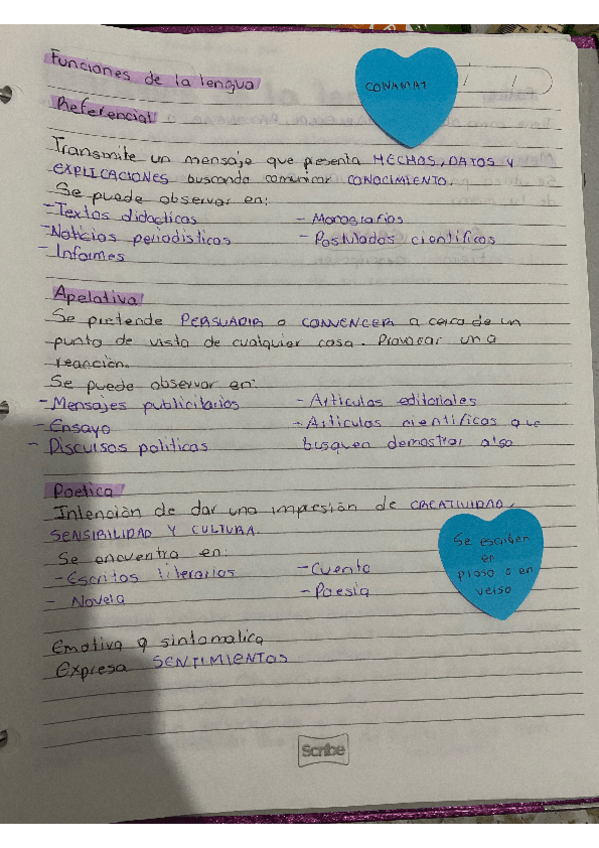 Funciones de la lengua
CONAMAT
Referencial
Transmite un mensaje que presenta HECHOS, DATOS Y
EXPLICACIONES buscando comunicar CONOCIMIENTO.
Se puede observar en:
- Textos didacticos - Monografias
- Noticias periodisticas - Postulados cientificos
- Informes
Apelativa
Se pretende PERSUADIR o CONVENCER a cerca de un
punto de vista de cualquier cosa. Provocar una
reanción.
Se puede observar en:
- Mensajes publicitarios - Articulos editoriales
- Ensayo - Articulos cientificos que
- Discursos politicos busquen demostrar algo
Poetica
Intención de dar una impresión de CREATIVIDAD,
SENSIBILIDAD Y CULTURA.
Se encuentra en:
- Escritos literarios - Cuento
- Novela - Poesia
Se escriben
en
prosa o en
verso
Emotiva o sintomatica
Expresa SENTIMIENTOS
Scribe